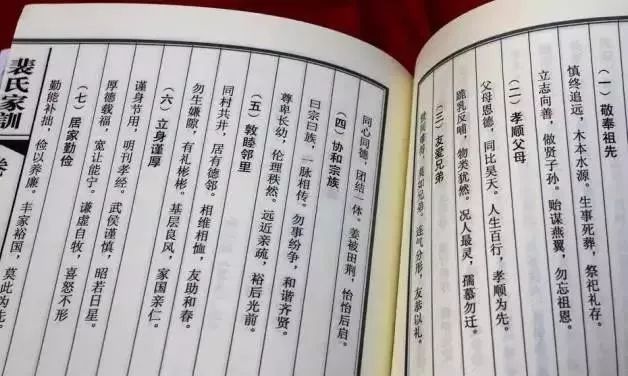 （一）敬奉祖先
慎终追远，木本水源。生事死葬，祭祀礼存。
立志向善，做贤子孙。贻谋燕翼，勿忘祖恩。
（二）孝顺父母
父母恩德，同比昊天。人生百行，孝顺为先。
跪乳反哺，物类犹然。况人最灵，孺慕勿迁。
（三）友爱兄弟
世间难得，莫如兄弟。连气分形，友恭以礼。
同心同德，团结一体。姜被田荆，怡怡后启。
（四）协和宗族
曰宗曰族，一脉相传。勿事纷争，和谐齐贤。
尊卑长幼，伦理秩然。远近亲疏，裕后光前。
（五）敦睦邻里
同村共井，居有德邻。相维相恤，友助和春。
勿生嫌隙，有礼彬彬。基层良风，家国亲仁。
（六）立身谨厚
谨身节用，明刊孝经。武侯谨慎，昭若日星。
厚德载福，宽让能宁。谦虚自牧，喜怒不形
（七）居家勤俭
勤能补拙，俭以养廉。丰家裕国，莫此为先。
裴氏家訓